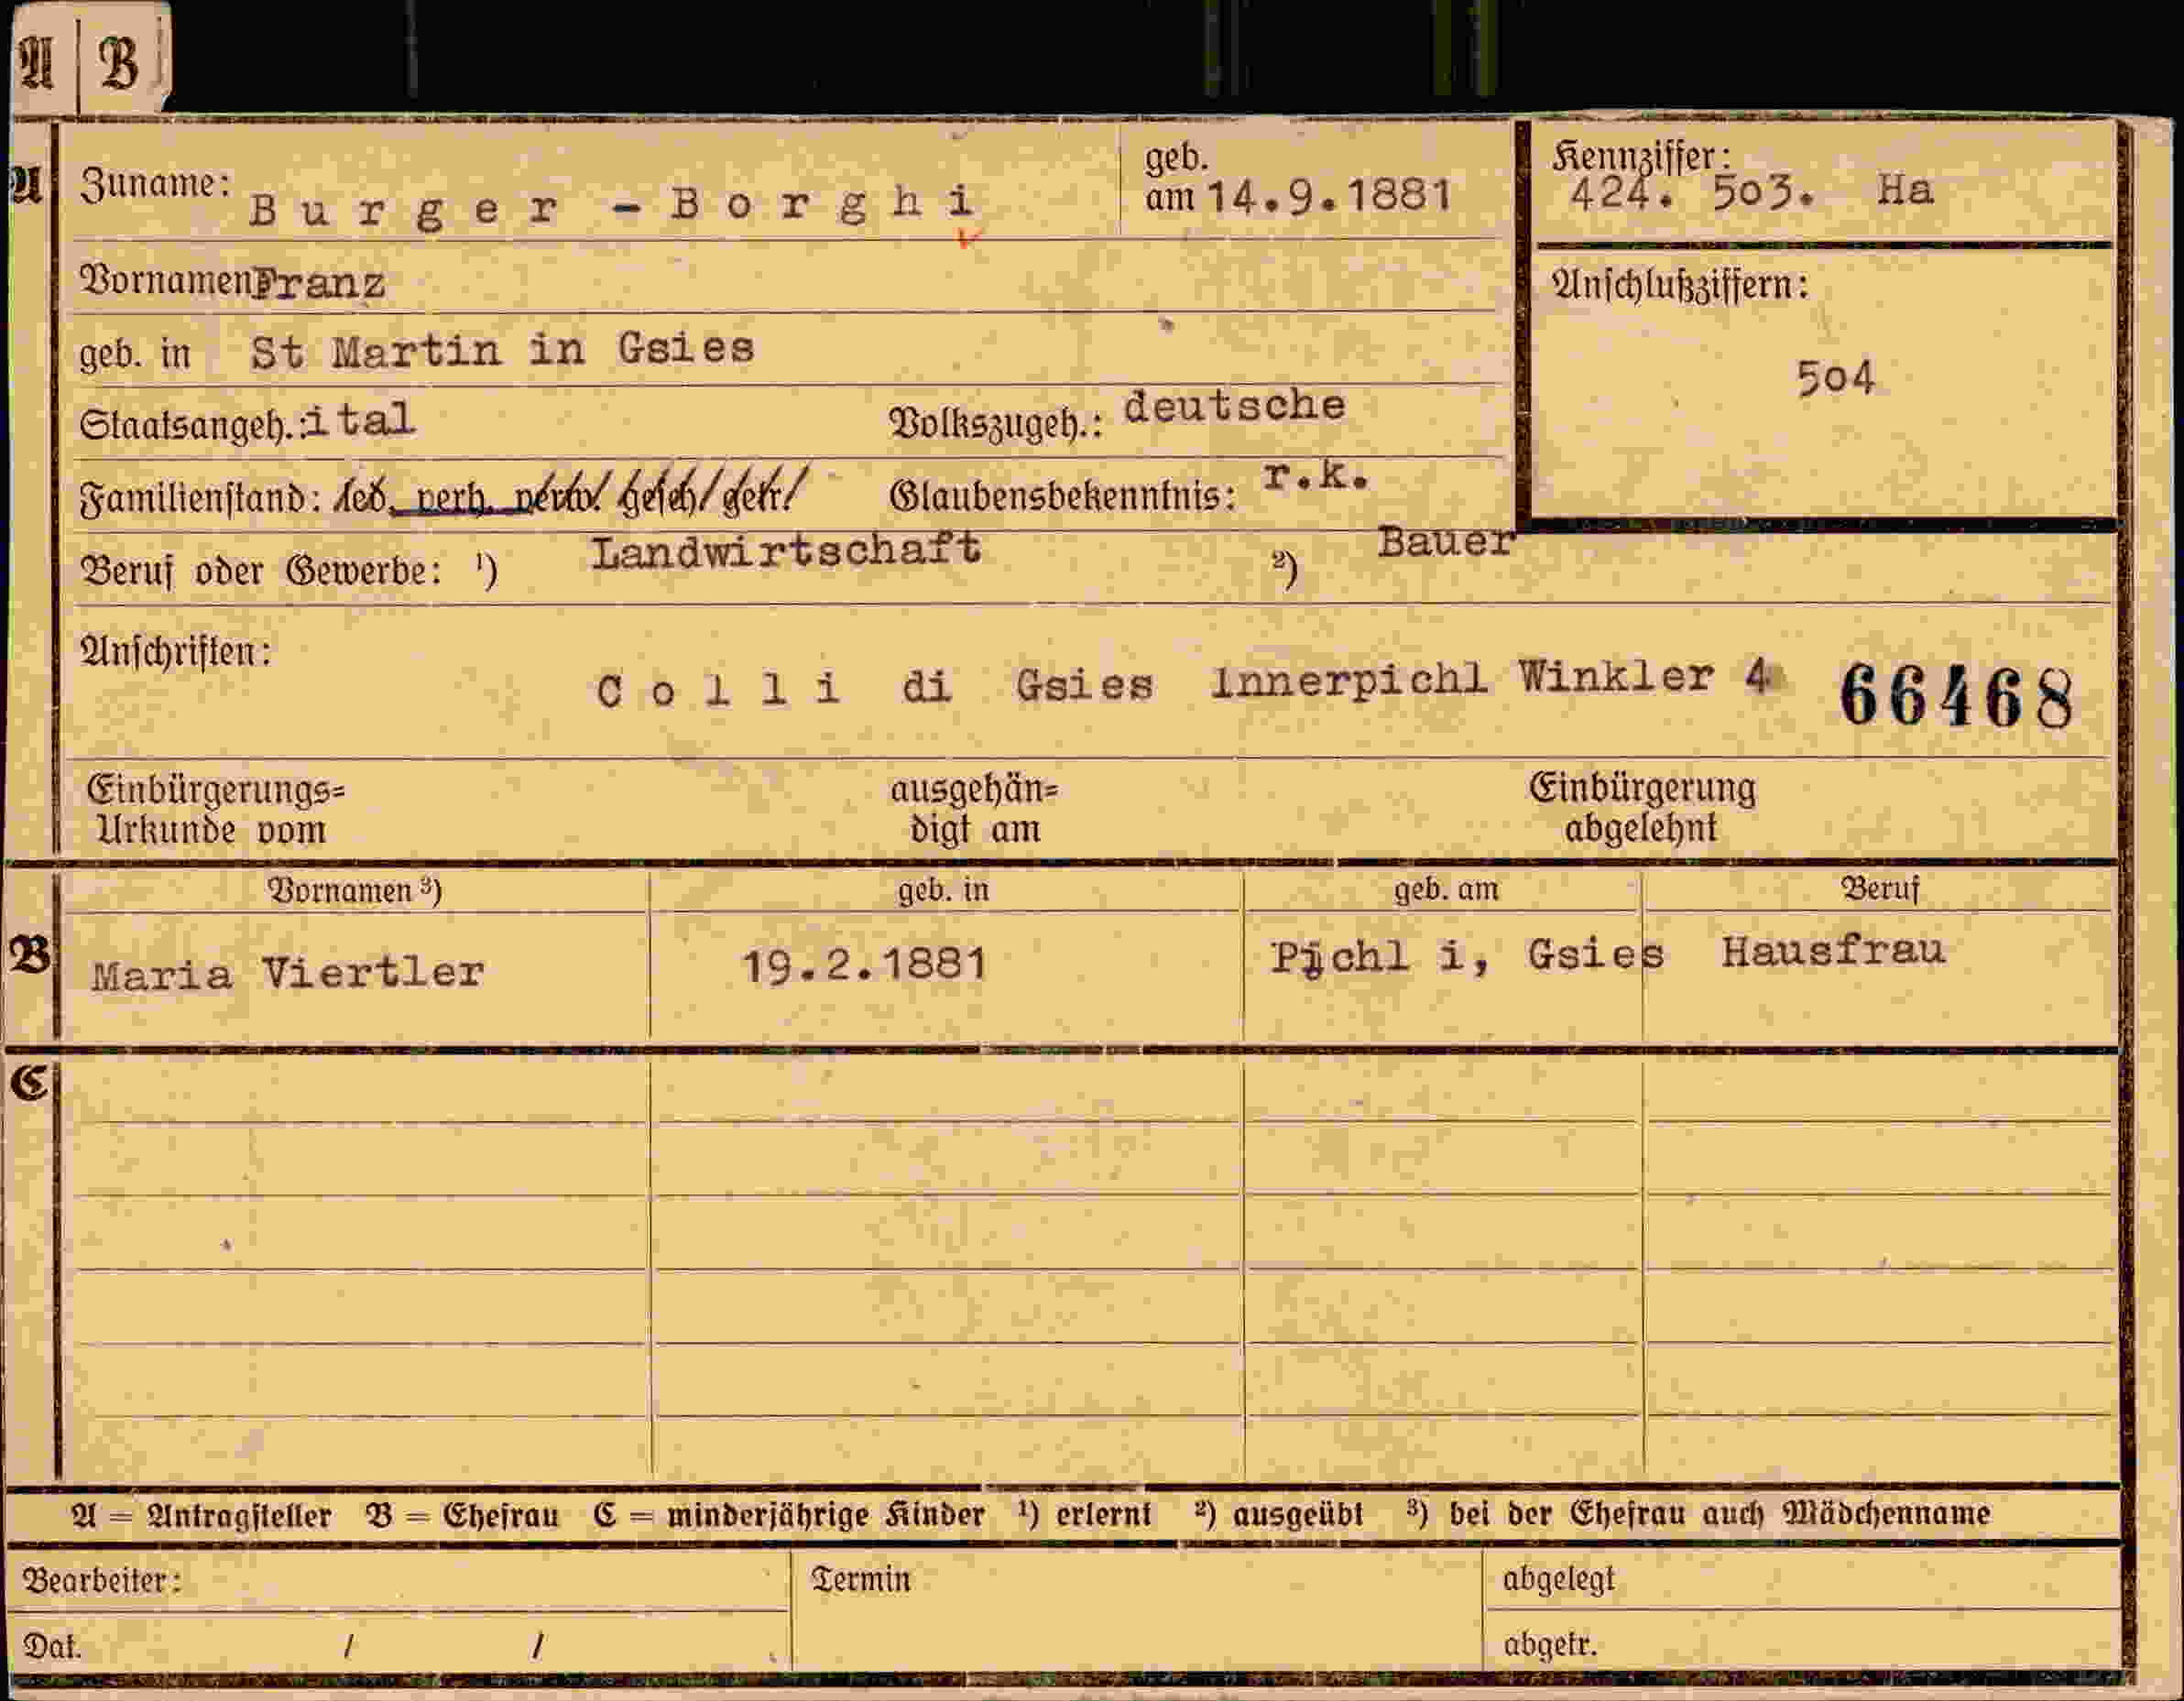 A B
A Zuname: Burger - Borghi geb. am 14.9.1881 Kennziffer: 424. 503. Ha
Vornamen Franz
Anschlußziffern:
geb. in St Martin in Gsies
504
Staatsangeh.: ital Volkszugeh.: deutsche
Familienstand: led. verh. verw. gesch. getr. Glaubensbekenntnis: r.k.
Beruf oder Gewerbe: ¹) Landwirtschaft ²) Bauer
Anschriften:
Colli di Gsies Innerpichl Winkler 4 66468
Einbürgerungs= ausgehän= Einbürgerung
Urkunde vom digt am abgelehnt
Vornamen ³) geb. in geb. am Beruf
B Maria Viertler 19.2.1881 Pichl i, Gsies Hausfrau
C
A = Antragsteller B = Ehefrau C = minderjährige Kinder ¹) erlernt ²) ausgeübt ³) bei der Ehefrau auch Mädchenname
Bearbeiter: Termin abgelegt
Dat. / / abgetr.